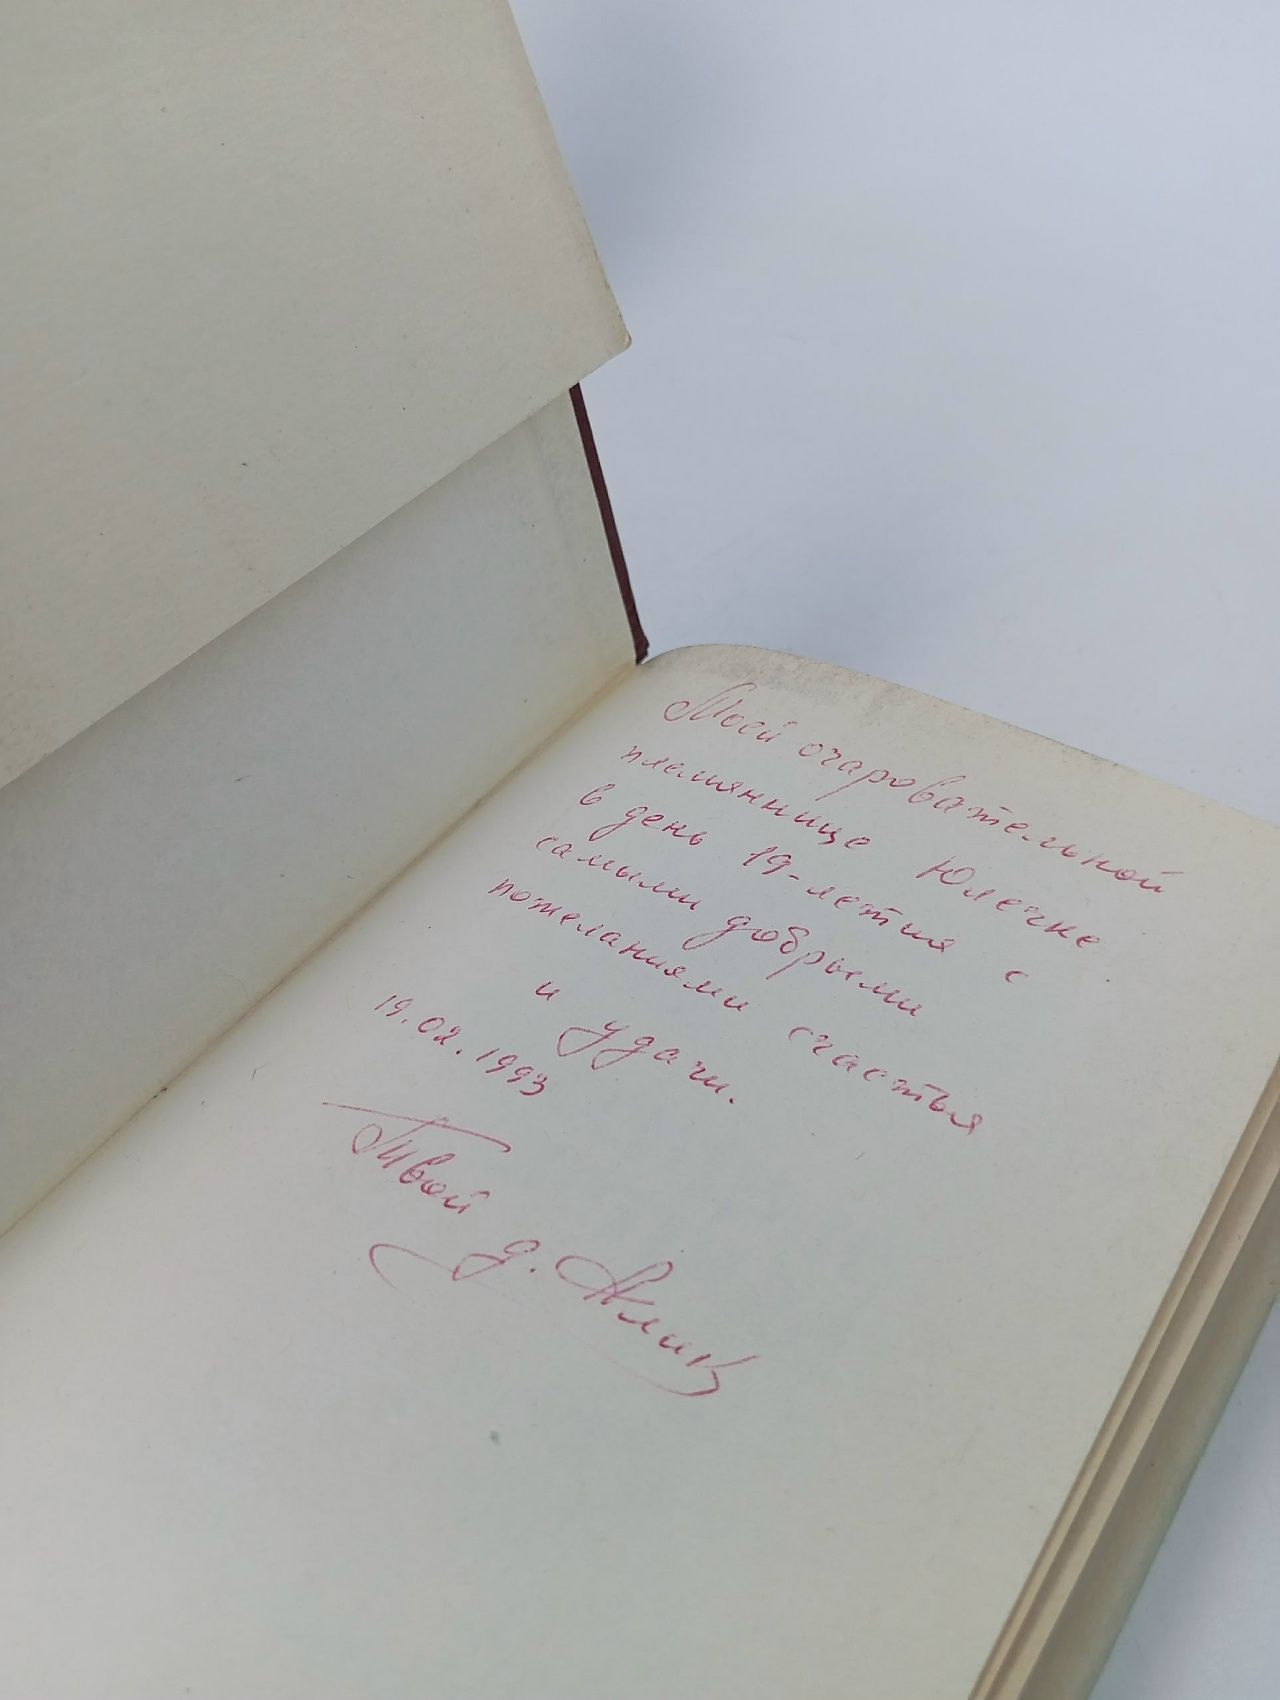 Моей очаровательной
племяннице Юлечке
в день 19-летия с
самыми добрыми
пожеланиями счастья
и удачи.
19.02.1993
Твой д. Алик